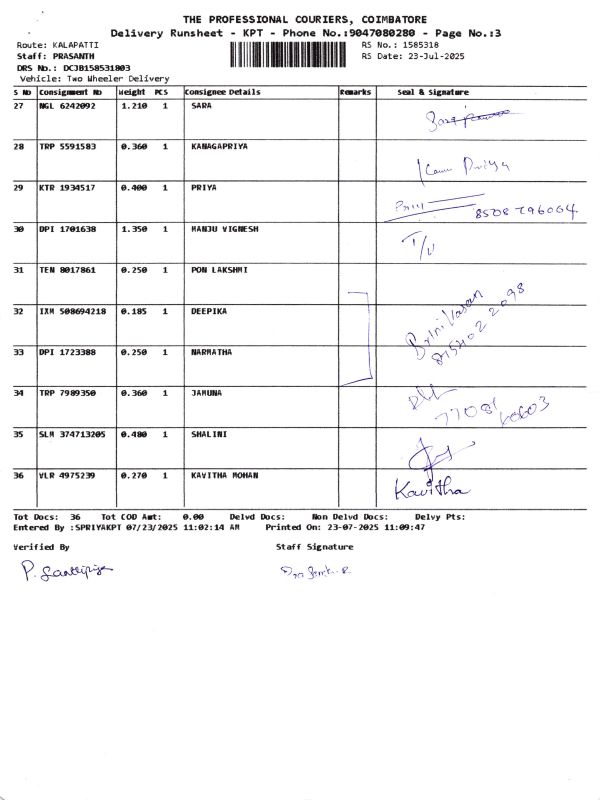 THE PROFESSIONAL COURIERS, COIMBATORE
Delivery Runsheet - KPT - Phone No.:9047080280 - Page No.:3
Route: KALAPATTI RS No.: 1585318
Staff: PRASANTH RS Date: 23-Jul-2025
DRS No.: DCJB158531803
Vehicle: Two Wheeler Delivery
S No Consignment No Weight PCS Consignee Details Remarks Seal & Signature
27 NGL 6242092 1.210 1 SARA
28 TRP 5591583 0.360 1 KANAGAPRIYA Priya
29 KTR 1934517 0.400 1 PRIYA Priy 8508796004
30 DPI 1701638 1.350 1 MANJU VIGNESH T/U
31 TEN 8017861 0.250 1 PON LAKSHMI
32 IXM 508694218 0.185 1 DEEPIKA Srinivasan
33 DPI 1723388 0.250 1 NARMATHA
34 TRP 7989350 0.360 1 JAMUNA 77081 60603
35 SLM 374713205 0.480 1 SHALINI
36 VLR 4975239 0.270 1 KAVITHA MOHAN Kavitha
Tot Docs: 36 Tot COD Amt: 0.00 Delvd Docs: Non Delvd Docs: Delvy Pts:
Entered By :SPRIYAKPT 07/23/2025 11:02:14 AM Printed On: 23-07-2025 11:09:47
Verified By Staff Signature